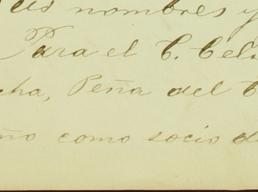 us nombres y
Para el C. Cel
cha, Peña del C
ño como socio d